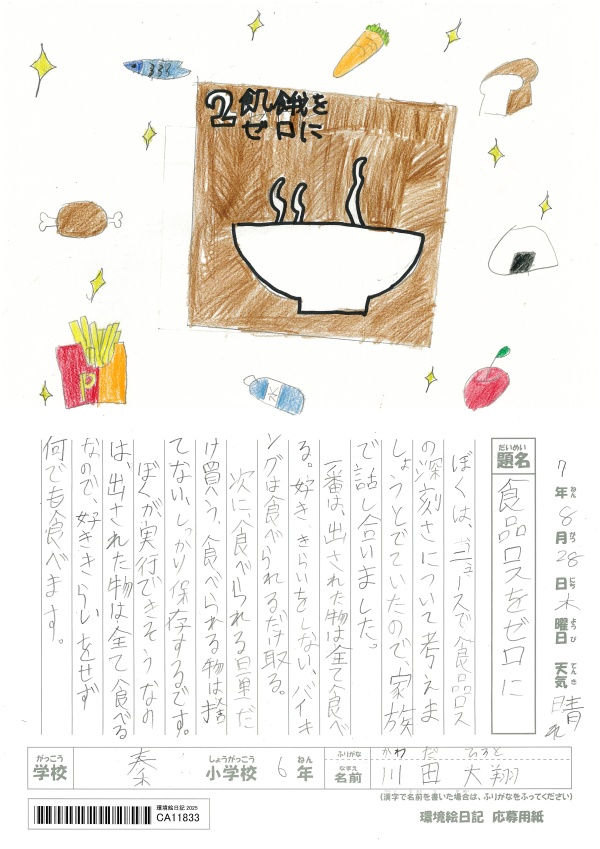 2 飢餓を
ゼロに
P
水
7年8月28日木曜日 天気 晴れ
ねん がつ にち ようび てんき
だいめい
題名 食品ロスをゼロに
ぼくは、ニュースで食品ロス
の深刻さについて考えま
しょうとでていたので、家族
で話し合いました。
一番は、出された物は全て食べ
る。好き、きらいをしない、バイキ
ングは食べられるだけ取る。
次に、食べられる量だ
け買う、食べられる物は捨
てない、しっかり保存するです。
ぼくが実行できそうなの
は、出された物は全て食べる
なので、好ききらいをせず
何でも食べます。
がっこう しょうがっこう ねん
学校 秦 小学校 6年
ふりがな かわ だ ひろと
なまえ
名前 川田 大翔
(漢字で名前を書いた場合は、ふりがなをふってください)
環境絵日記 2025
CA11833
環境絵日記 応募用紙